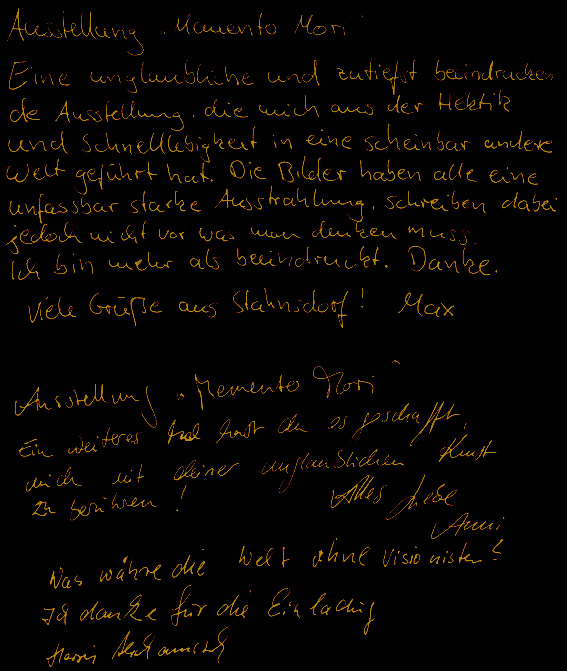 Ausstellung „Memento Mori"
Eine unglaubliche und zutiefst beindrucken
de Ausstellung, die mich aus der Hektik
und Schnelllebigkeit in eine scheinbar andere
Welt geführt hat. Die Bilder haben alle eine
unfassbar starke Ausstrahlung, schreiben dabei
jedoch nicht vor was man denken muss.
Ich bin mehr als beeindruckt. Danke.
Viele Grüße aus Stahnsdorf! Max
Ausstellung „Memento Mori"
Ein weiteres Mal hast du es geschafft,
mich mit deiner unglaublichen Kunst
zu berühren! Alles Liebe
Anni
Was währe die Welt ohne Visionisten!
Ich danke für die Einladung